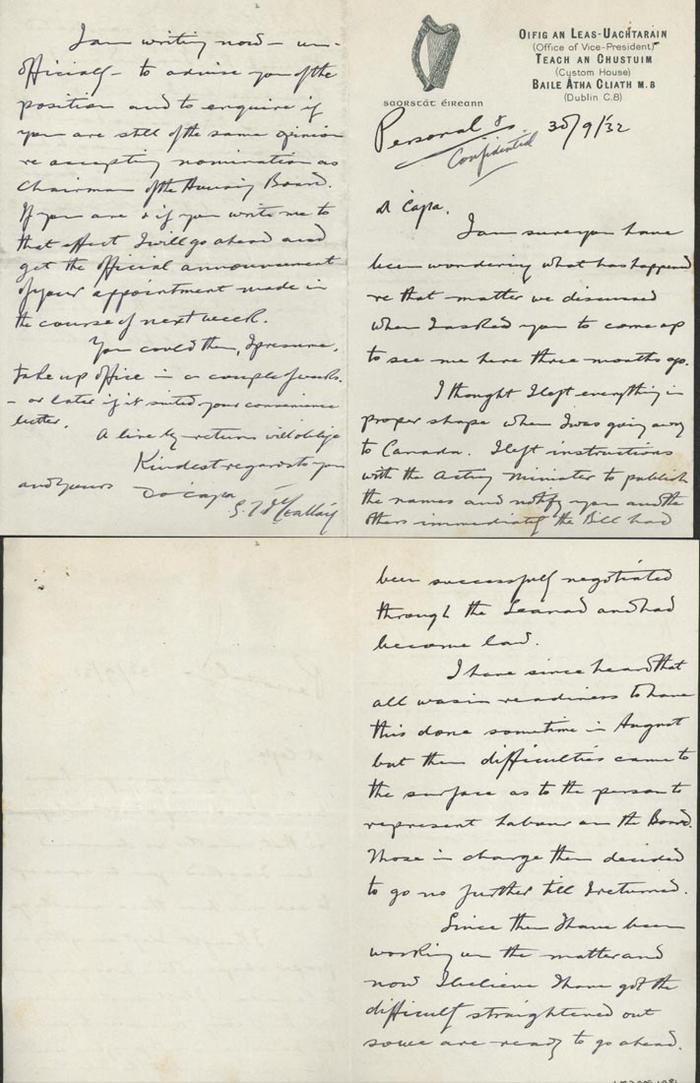 SAORSTÁT ÉIREANN
OIFIG AN LEAS-UACHTARAIN
(Office of Vice-President)
TEACH AN CHUSTUIM
(Custom House)
BAILE ÁTHA CLIATH M.B
(Dublin C.8)
Personal &
Confidential
30/9/32
A Capa,
I am sure you have
been wondering what has happened
re that matter we discussed
when I asked you to come up
to see me here three months ago.
I thought I left everything in
proper shape when I was going away
to Canada. I left instructions
with the Acting Minister to publish
the names and notify you and the
others immediately the Bill had
been successfully negotiated
through the Seanad and had
become law.
I have since heard that
all was in readiness to have
this done sometime in August
but then difficulties came to
the surface as to the person to
represent Labour on the Board.
Those in charge then decided
to go no further till I returned.
Since then I have been
working on the matter and
now I believe I have got the
difficulty straightened out
so we are ready to go ahead.
I am writing now – un-
officially – to advise you of the
position and to enquire if
you are still of the same opinion
re accepting nomination as
Chairman of the Housing Board.
If you are & if you write me to
that effect I will go ahead and
get the official announcement
of your appointment made in
the course of next week.
You could then, I presume,
take up office in a couple of weeks.
– or later if it suited your convenience
better.
A line by return will oblige
Kindest regards to you
and yours
Do Capa